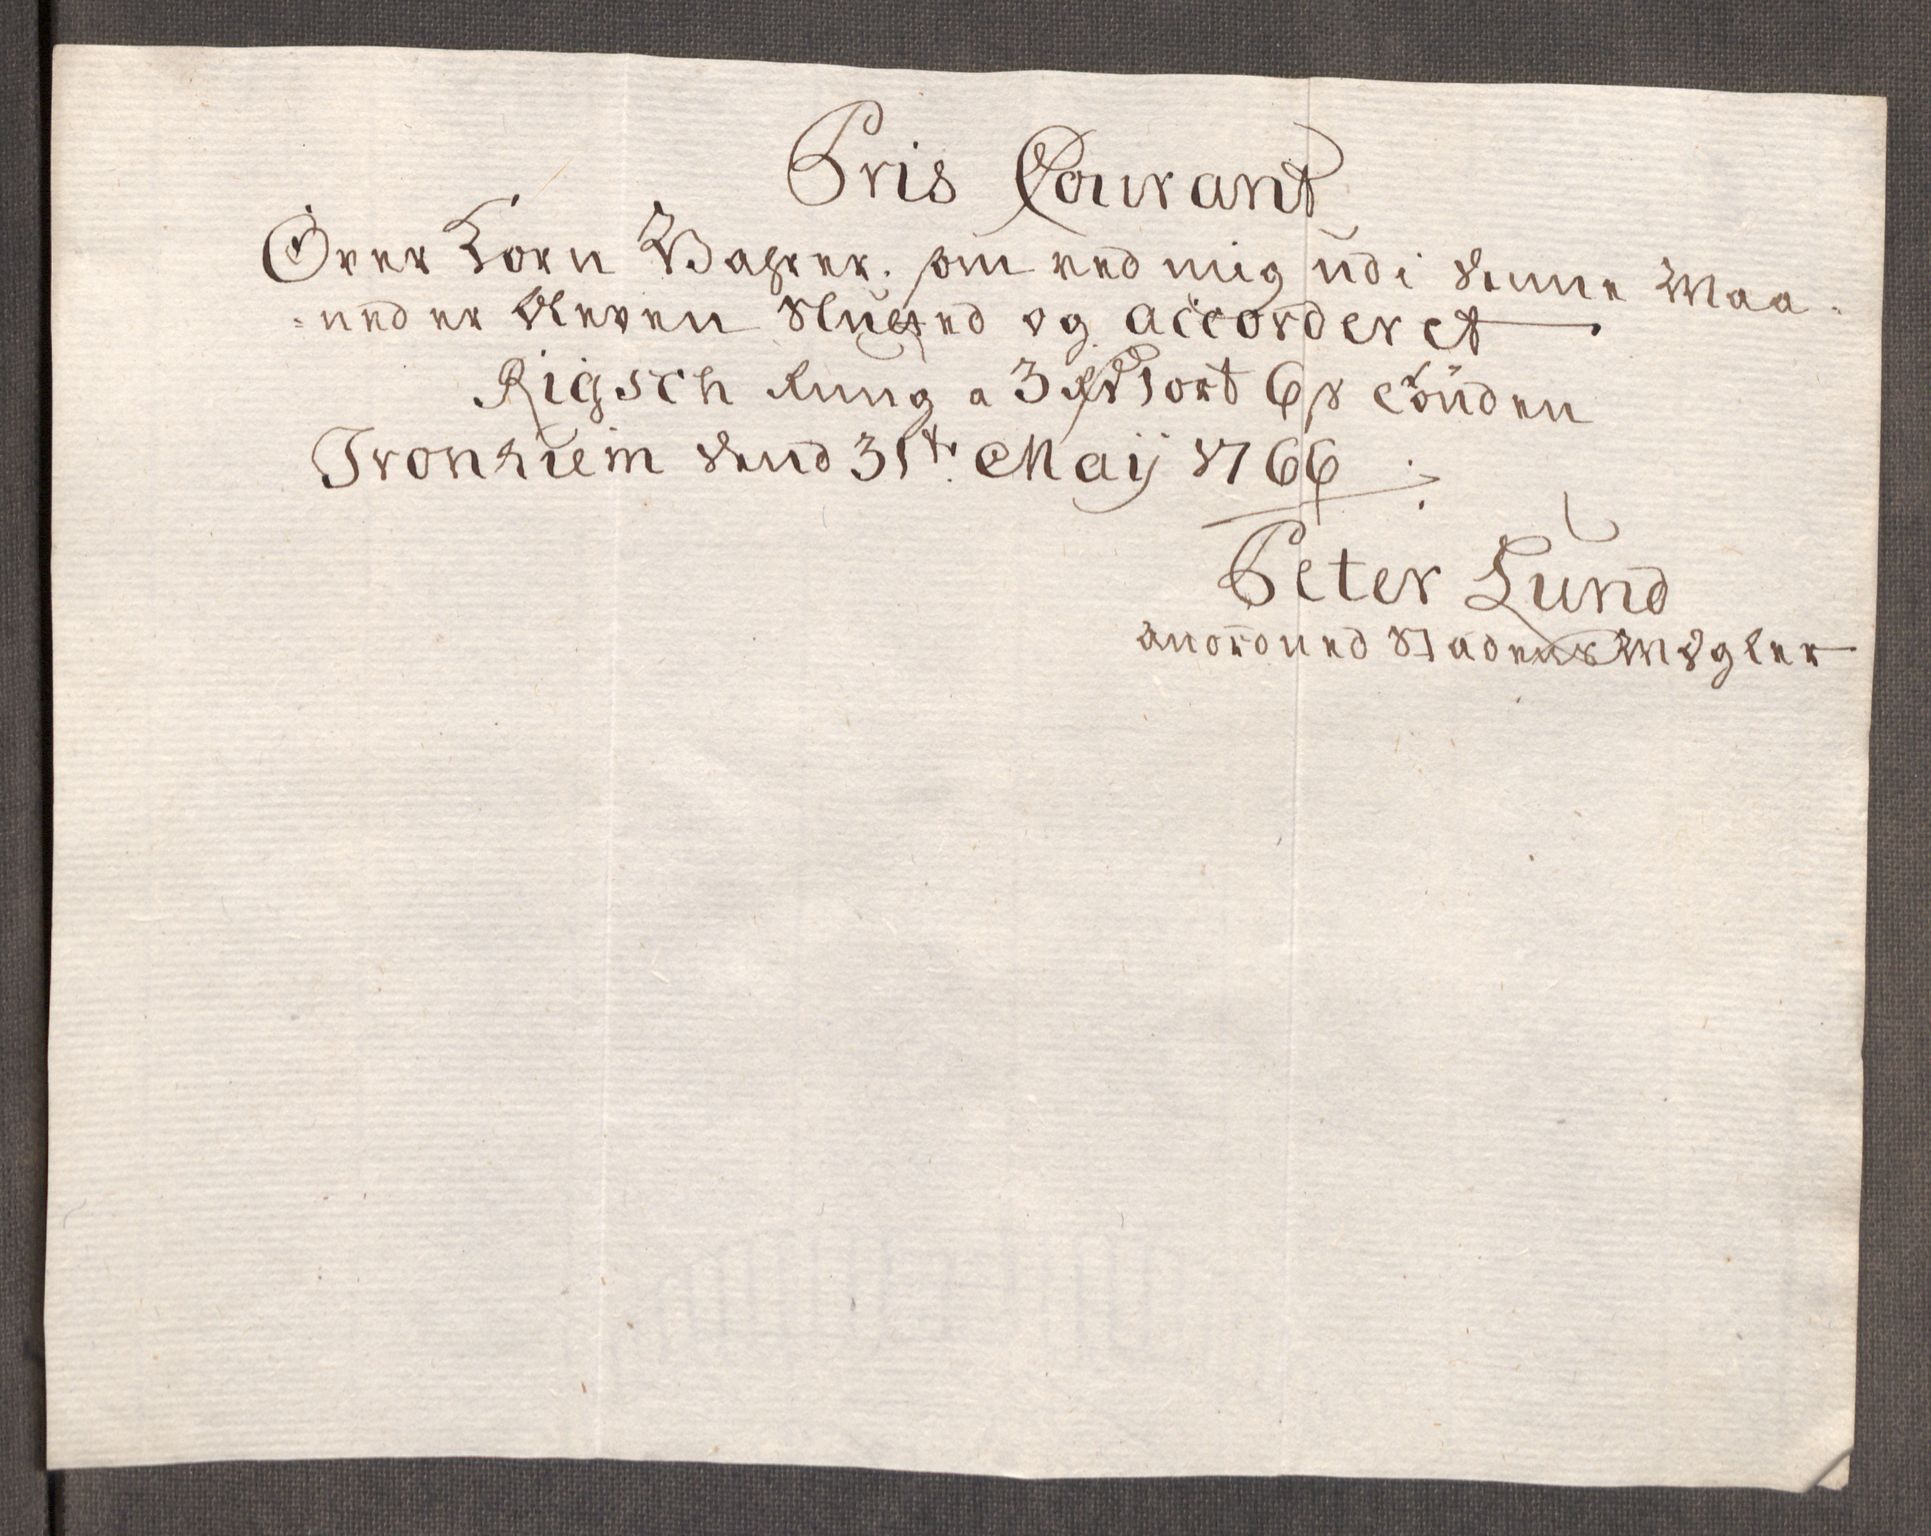 Pris Courant
Over Korn Vahrer. som ved mig udi denne Maa-
-ned er bleven Slutted og accorderet
Rigsch Rug a 3 Rd 1 ort 6 s Tönden
Tronhiem dend 31te Maij 1766
Peter Lund
anordned Stadens Mægler